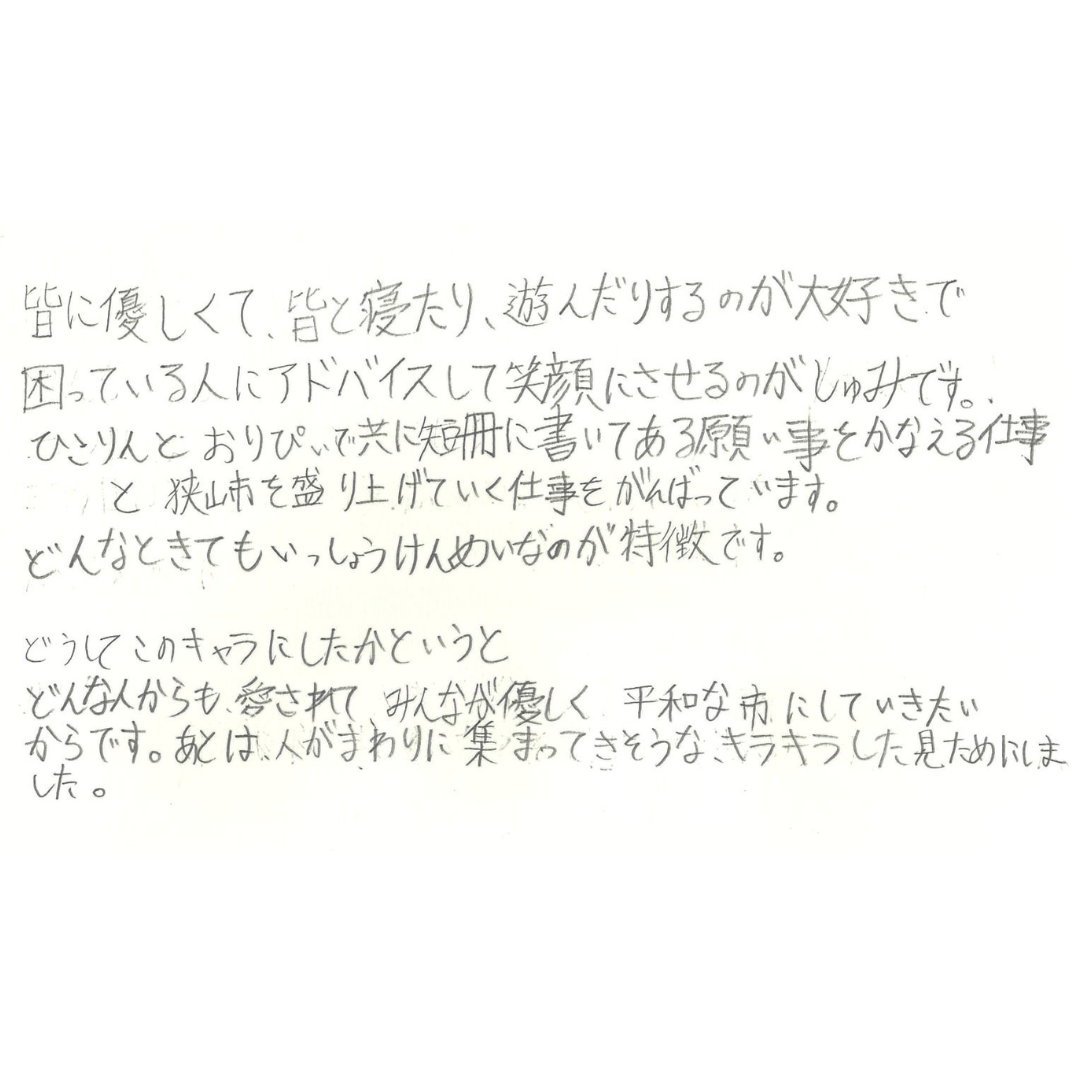 皆に優しくて、皆と寝たり、遊んだりするのが大好きで
困っている人にアドバイスして笑顔にさせるのがしゅみです。
ひこりんとおりぴぃで共に短冊に書いてある願い事をかなえる仕事
と狭山市を盛り上げていく仕事をがんばっています。
どんなときてもいっしょうけんめいなのが特徴です。
どうしてこのキャラにしたかというと
どんな人からも愛されて みんなが優しく 平和な市にしていきたい
からです。あとは、人がまわりに集まってきそうな、キラキラした見ためにしま
した。